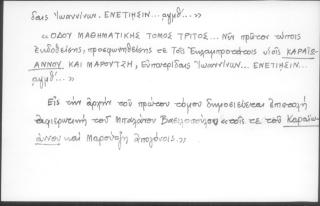 δαις Ἰωαννίνων. ΕΝΕΤΙΗΣΙΝ... αψμθ'...»
«ΟΔΟΥ ΜΑΘΗΜΑΤΙΚΗΣ ΤΟΜΟΣ ΤΡΙΤΟΣ... Νῦν πρῶτον τύποις
ἐκδοθείσης, προσφωνηθείσης δὲ τοῖς υἱοῖς ΚΑΡΑΪΩ-
ΑΝΝΟΥ ΚΑΙ ΜΑΡΟΥΤΣΗ, Εὐπατρίδαις Ἰωαννίνων... ΕΝΕΤΙΗΣΙΝ...
αψμθ'...»
Εἰς τὴν ἀρχὴν τοῦ πρώτου τόμου δημοσιεύεται ἐπιστολὴ
ἀφιερωτικὴ τοῦ Μπαλάνου Βασιλοπούλου «τοῖς τε τοῦ Καραϊω-
άννου καὶ Μαρούτζη ἀπογόνοις».